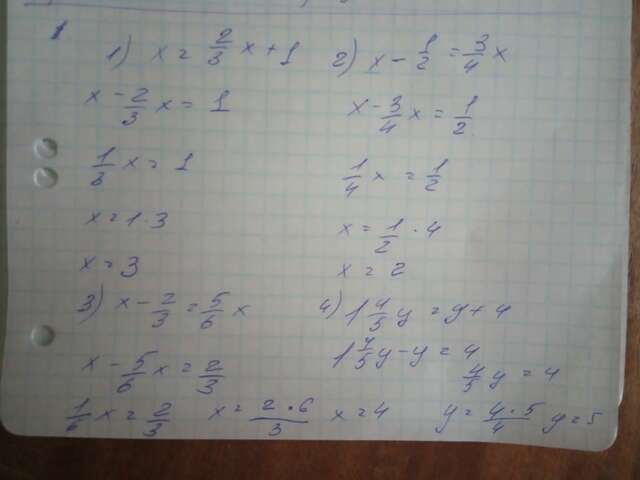 1) x = 2/3 x + 1
x - 2/3 x = 1
1/3 x = 1
x = 1 · 3
x = 3
2) x - 1/2 = 3/4 x
x - 3/4 x = 1/2
1/4 x = 1/2
x = 1/2 · 4
x = 2
3) x - 2/3 = 5/6 x
x - 5/6 x = 2/3
1/6 x = 2/3 x = 2·6/3 x = 4
4) 1 4/5 y = y + 4
1 4/5 y - y = 4
4/5 y = 4
y = 4·5/4 y = 5